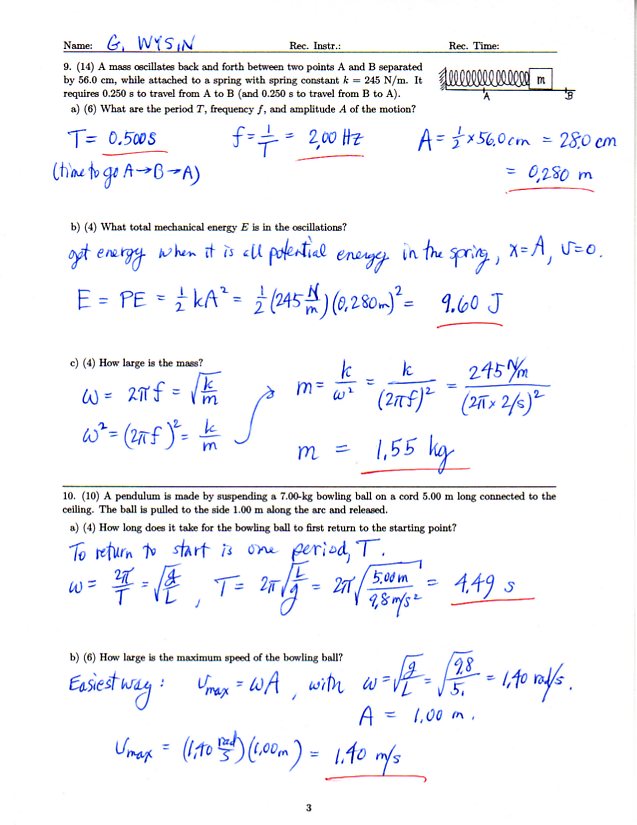 Name: G. WYSIN Rec. Instr.: Rec. Time:
9. (14) A mass oscillates back and forth between two points A and B separated
by 56.0 cm, while attached to a spring with spring constant k = 245 N/m. It
requires 0.250 s to travel from A to B (and 0.250 s to travel from B to A).
m
A
B
a) (6) What are the period T, frequency f, and amplitude A of the motion?
T = 0.500 s f = 1/T = 2.00 Hz A = 1/2 × 56.0 cm = 28.0 cm
(time to go A→B→A) = 0.280 m
b) (4) What total mechanical energy E is in the oscillations?
get energy when it is all potential energy in the spring, x=A, v=0.
E = PE = 1/2 kA² = 1/2 (245 N/m)(0.280m)² = 9.60 J
c) (4) How large is the mass?
ω = 2πf = √(k/m) m = k/ω² = k/(2πf)² = 245 N/m/(2π × 2/s)²
ω² = (2πf)² = k/m
m = 1.55 kg
10. (10) A pendulum is made by suspending a 7.00-kg bowling ball on a cord 5.00 m long connected to the
ceiling. The ball is pulled to the side 1.00 m along the arc and released.
a) (4) How long does it take for the bowling ball to first return to the starting point?
To return to start is one period, T.
ω = 2π/T = √(g/L) , T = 2π√(L/g) = 2π√(5.00m/9.8m/s²) = 4.49 s
b) (6) How large is the maximum speed of the bowling ball?
Easiest way: υmax = ωA , with ω = √(g/L) = √(9.8/5.) = 1.40 rad/s.
A = 1.00 m.
υmax = (1.40 rad/s)(1.00m) = 1.40 m/s
3